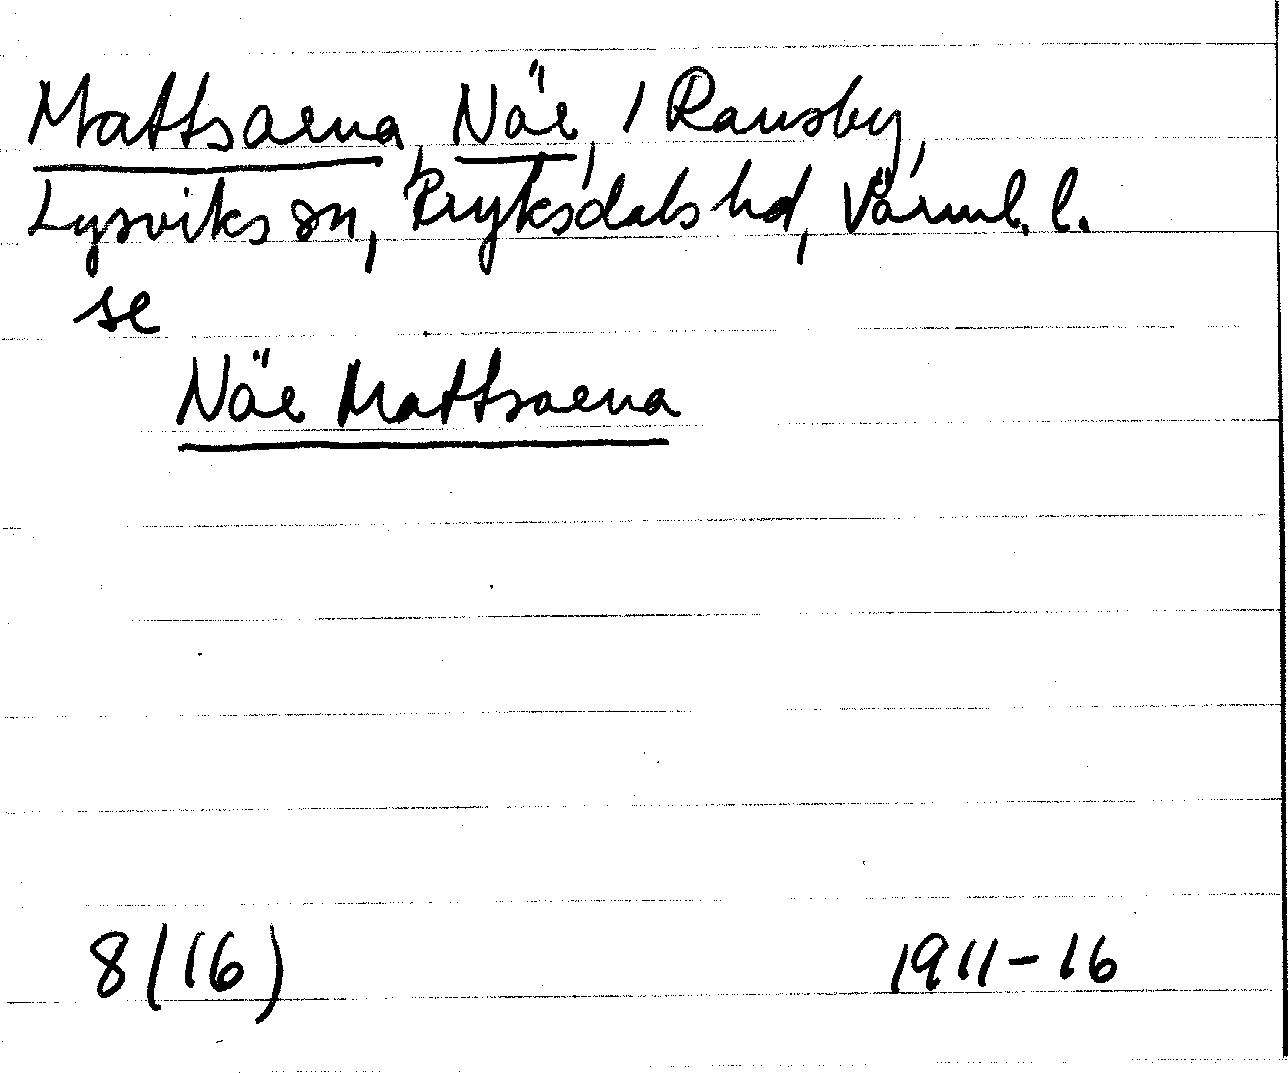 Mattsaena, Näe, i Ransby,
Lysviks sn, Fryksdals hd, Värml. l.
se
Näe Mattsaena
8 (16) 1911-16